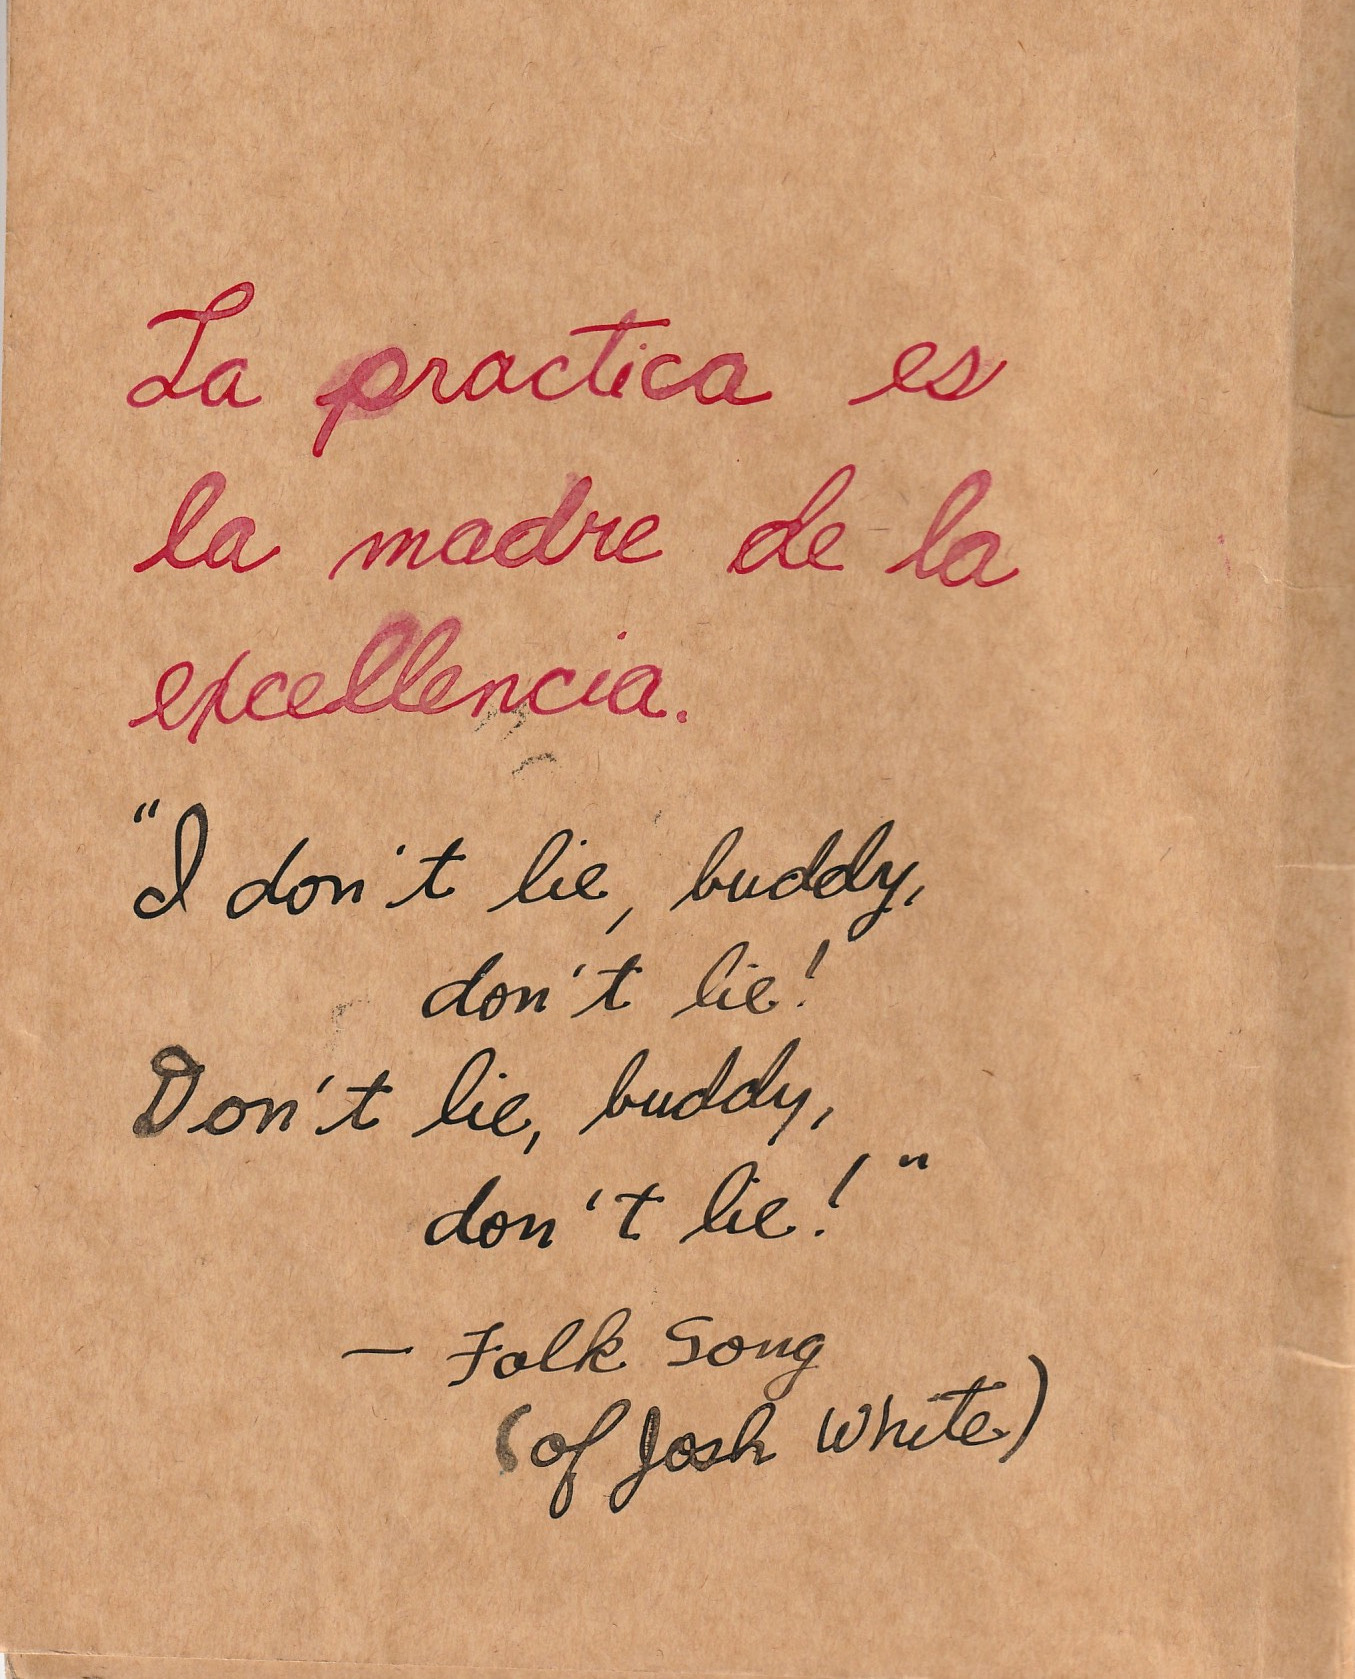 La practica es
la madre de la
excellencia.
"I don't lie, buddy,
don't lie!
Don't lie, buddy,
don't lie!"
— Folk Song
(of Josh White)